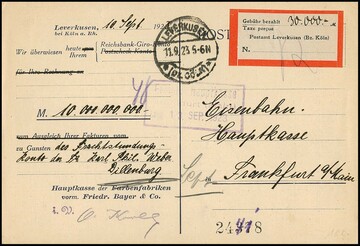 Leverkusen, 10. Sept. 192
bei Köln a. Rh.
Wir überweisen heute
Reichsbank-Giro-
Ihrem Postscheck-Konto
für Ihre Rechnung
M. 10 000 000.—
zum Ausgleich Ihrer Fakturen vom
zu Gunsten des
Konto der Dr Karl Phil. Weber
Dillenburg
Hauptkasse der Farbenfabriken
vorm. Friedr. Bayer & Co.
LEVERKUSEN
11.9.23.5-6N
Gebühr bezahlt 30.000.-
Taxe perçue
Postamt Leverkusen (Bz. Köln)
N.
POST
Eisenbahn-
Hauptkasse
Frankfurt a/Main